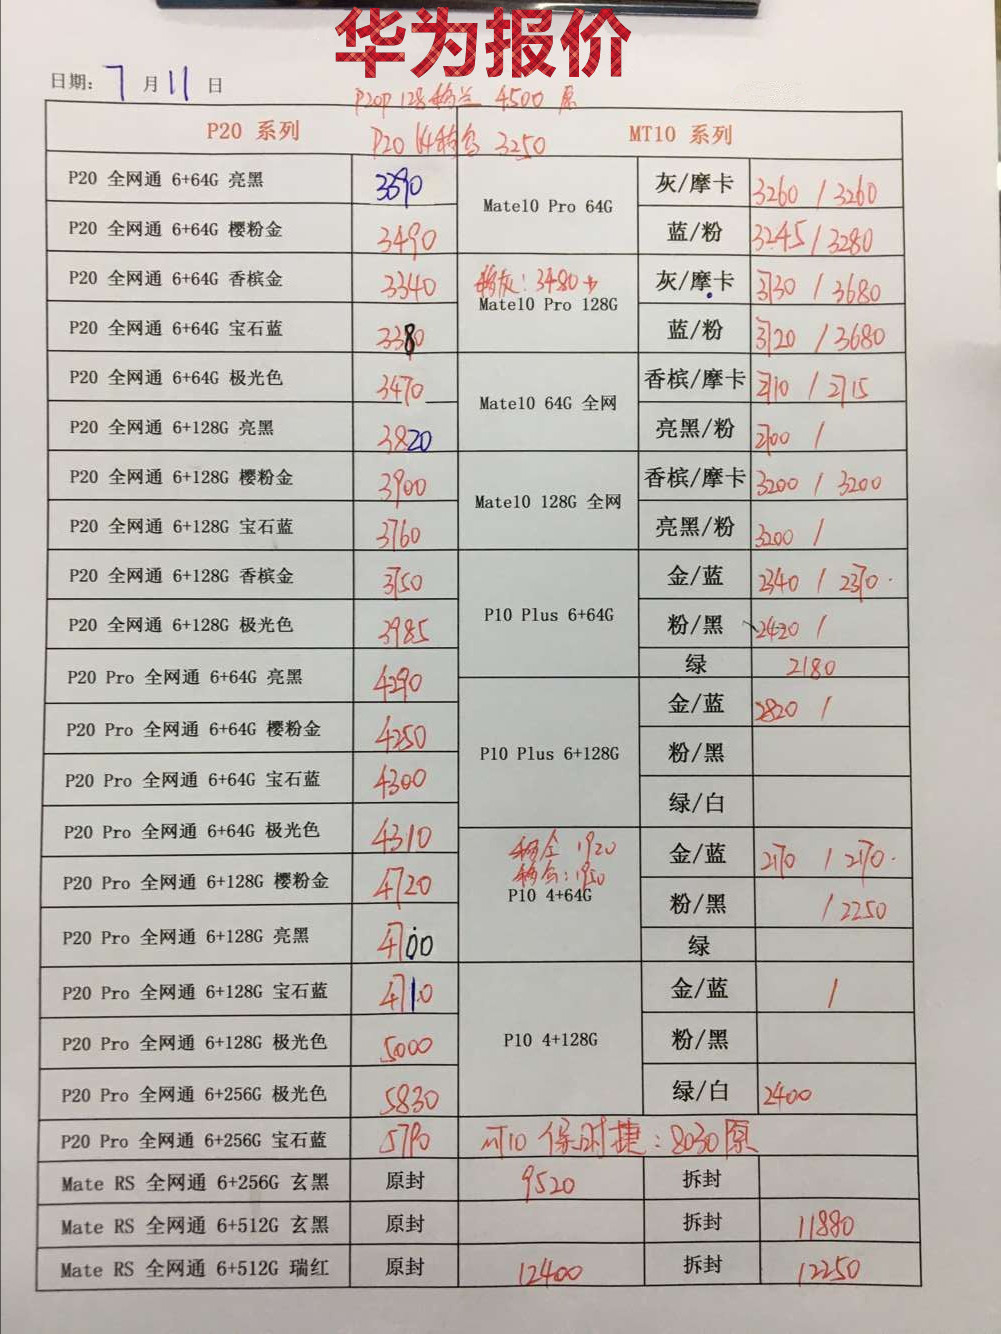 华为报价
日期: 7 月 11 日
P20P 128移兰 4500 原
P20 系列 P20 64移宝 3250 MT10 系列
P20 全网通 6+64G 亮黑 3390
P20 全网通 6+64G 樱粉金 3490
P20 全网通 6+64G 香槟金 3340
P20 全网通 6+64G 宝石蓝 3380
P20 全网通 6+64G 极光色 3470
P20 全网通 6+128G 亮黑 3820
P20 全网通 6+128G 樱粉金 3900
P20 全网通 6+128G 宝石蓝 3760
P20 全网通 6+128G 香槟金 3750
P20 全网通 6+128G 极光色 3985
P20 Pro 全网通 6+64G 亮黑 4290
P20 Pro 全网通 6+64G 樱粉金 4250
P20 Pro 全网通 6+64G 宝石蓝 4300
P20 Pro 全网通 6+64G 极光色 4310
P20 Pro 全网通 6+128G 樱粉金 4720
P20 Pro 全网通 6+128G 亮黑 4700
P20 Pro 全网通 6+128G 宝石蓝 4710
P20 Pro 全网通 6+128G 极光色 5000
P20 Pro 全网通 6+256G 极光色 5830
P20 Pro 全网通 6+256G 宝石蓝 5790
Mate10 Pro 64G
灰/摩卡 3260 / 3260
蓝/粉 3245 / 3280
移灰: 3480
Mate10 Pro 128G
灰/摩卡 3730 / 3680
蓝/粉 3720 / 3680
Mate10 64G 全网
香槟/摩卡 2710 / 2715
亮黑/粉 2700 /
Mate10 128G 全网
香槟/摩卡 3200 / 3200
亮黑/粉 3200 /
P10 Plus 6+64G
金/蓝 2340 / 2370
粉/黑 2420 /
绿 2180
P10 Plus 6+128G
金/蓝 2820 /
粉/黑
绿/白
移全 1920
移宝: 1950
P10 4+64G
金/蓝 2170 / 2170
粉/黑 / 2250
绿
P10 4+128G
金/蓝 /
粉/黑
绿/白 2400
MT10 保时捷: 8030 原
Mate RS 全网通 6+256G 玄黑 原封 9520 拆封
Mate RS 全网通 6+512G 玄黑 原封 拆封 11880
Mate RS 全网通 6+512G 瑞红 原封 12400 拆封 12250